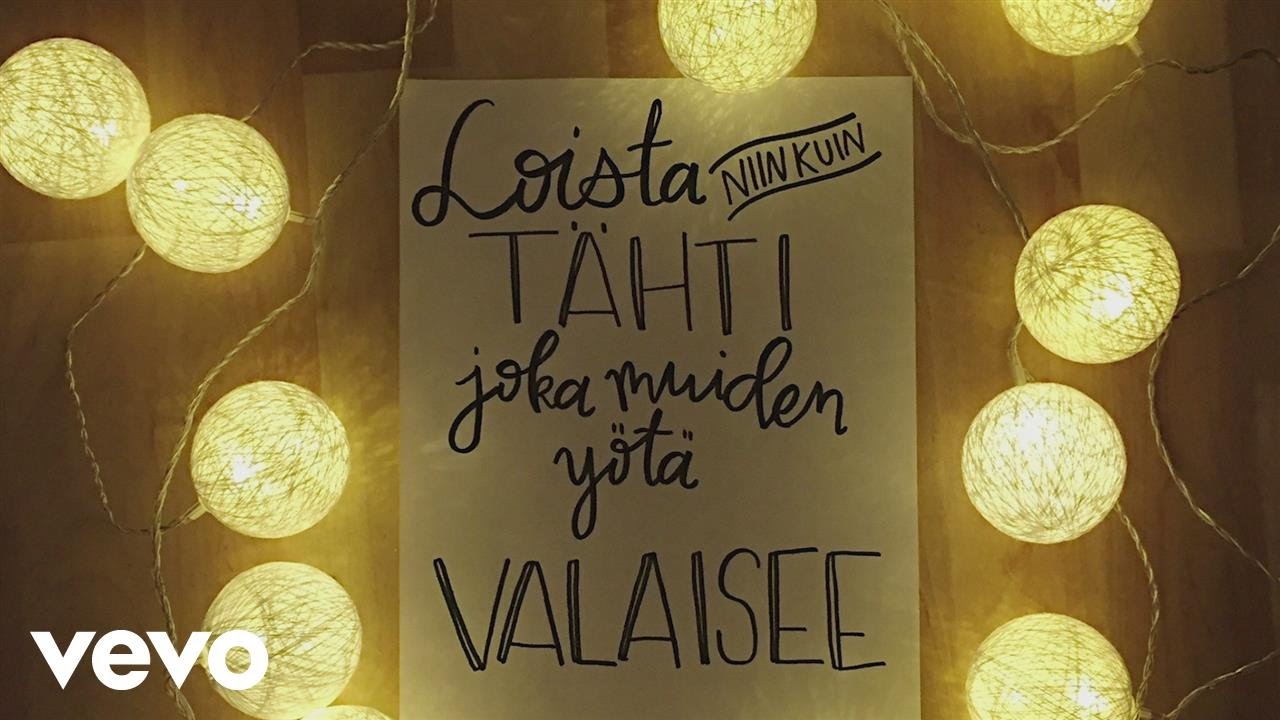 Loista NIIN KUIN
TÄHTI
joka muiden
yötä
VALAISEE
vevo